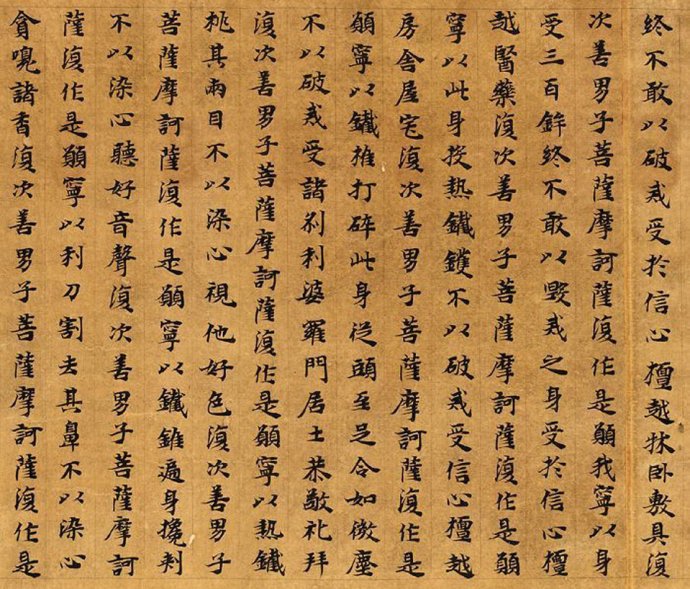 終不敢以破戒受於信心檀越牀卧敷具復
次善男子菩薩摩訶薩復作是願我寧以身
受三百鉾終不敢以毀戒之身受於信心檀
越醫藥復次善男子菩薩摩訶薩復作是願
寧以此身投熱鐵鑊不以破戒受信心檀越
房舍屋宅復次善男子菩薩摩訶薩復作是
願寧以鐵椎打碎此身從頭至足令如微塵
不以破戒受諸刹利婆羅門居士恭敬礼拜
復次善男子菩薩摩訶薩復作是願寧以熱鐵
挑其兩目不以染心視他好色復次善男子
菩薩摩訶薩復作是願寧以鐵錐遍身攙刺
不以染心聽好音聲復次善男子菩薩摩訶
薩復作是願寧以利刀割去其鼻不以染心
貪嗅諸香復次善男子菩薩摩訶薩復作是